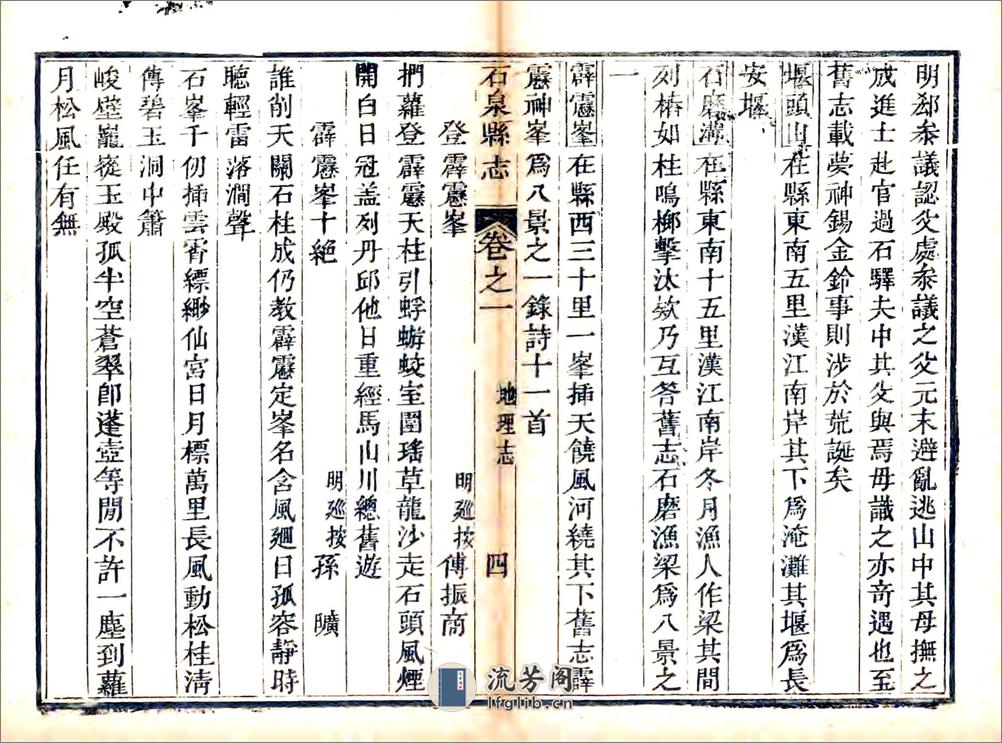 明郄叅議認父處叅議之父元末避亂逃山中其母撫之
成進士赴官過石驛夫中其父與焉母識之亦奇遇也至
舊志載夢神錫金鈴事則涉於荒誕矣
堰頭山在縣東南五里漢江南岸其下爲淹灘其堰爲長
安堰
石磨灘在縣東南十五里漢江南岸冬月漁人作梁其間
列樁如柱鳴榔擊汰欸乃互答舊志石磨漁梁爲八景之
一
霹靂峯在縣西三十里一峯插天饒風河繞其下舊志霹
靂神峯爲八景之一錄詩十一首
石泉縣志 卷之一 地理志 四
登霹靂峯 明廵按傅振商
捫蘿登霹靂天柱引蜉蝣蛟室圍瑤草龍沙走石頭風煙
開白日冠盖列丹邱他日重經馬山川總舊遊
霹靂峯十絶 明廵按孫曠
誰削天關石桂成仍教霹靂定峯名含風廻日孤容靜時
聽輕雷落澗聲
石峯千仞插雲霄縹緲仙宮日月標萬里長風動松桂清
傳碧玉洞中簫
峻壁巃嵸玉殿孤半空蒼翠卽蓬壺等閒不許一塵到蘿
月松風任有無
流芳阁
lfglib.cn